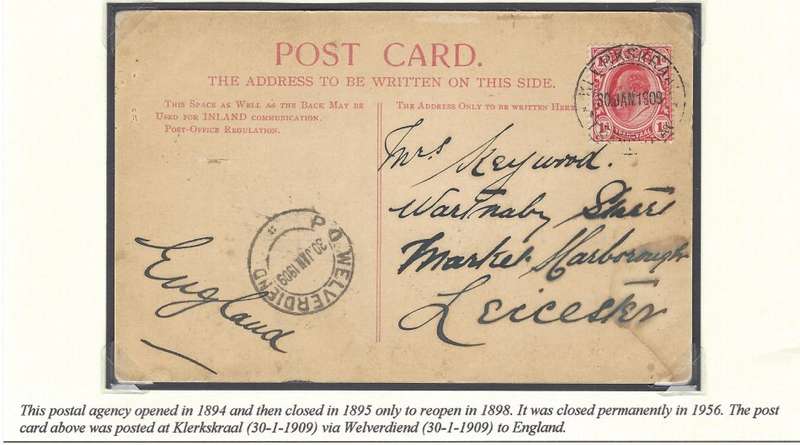 POST CARD.
THE ADDRESS TO BE WRITTEN ON THIS SIDE.
THIS SPACE AS WELL AS THE BACK MAY BE
USED FOR INLAND COMMUNICATION.
POST-OFFICE REGULATION.
THE ADDRESS ONLY TO BE WRITTEN HERE
KLERKSKRAAL
30 JAN 1909
1d
1d
Mrs Keywood.
Wartnaby Street
Market Harborough
Leicester
England
P.O. WELVERDIEND
30 JAN 1909
This postal agency opened in 1894 and then closed in 1895 only to reopen in 1898. It was closed permanently in 1956. The post
card above was posted at Klerkskraal (30-1-1909) via Welverdiend (30-1-1909) to England.